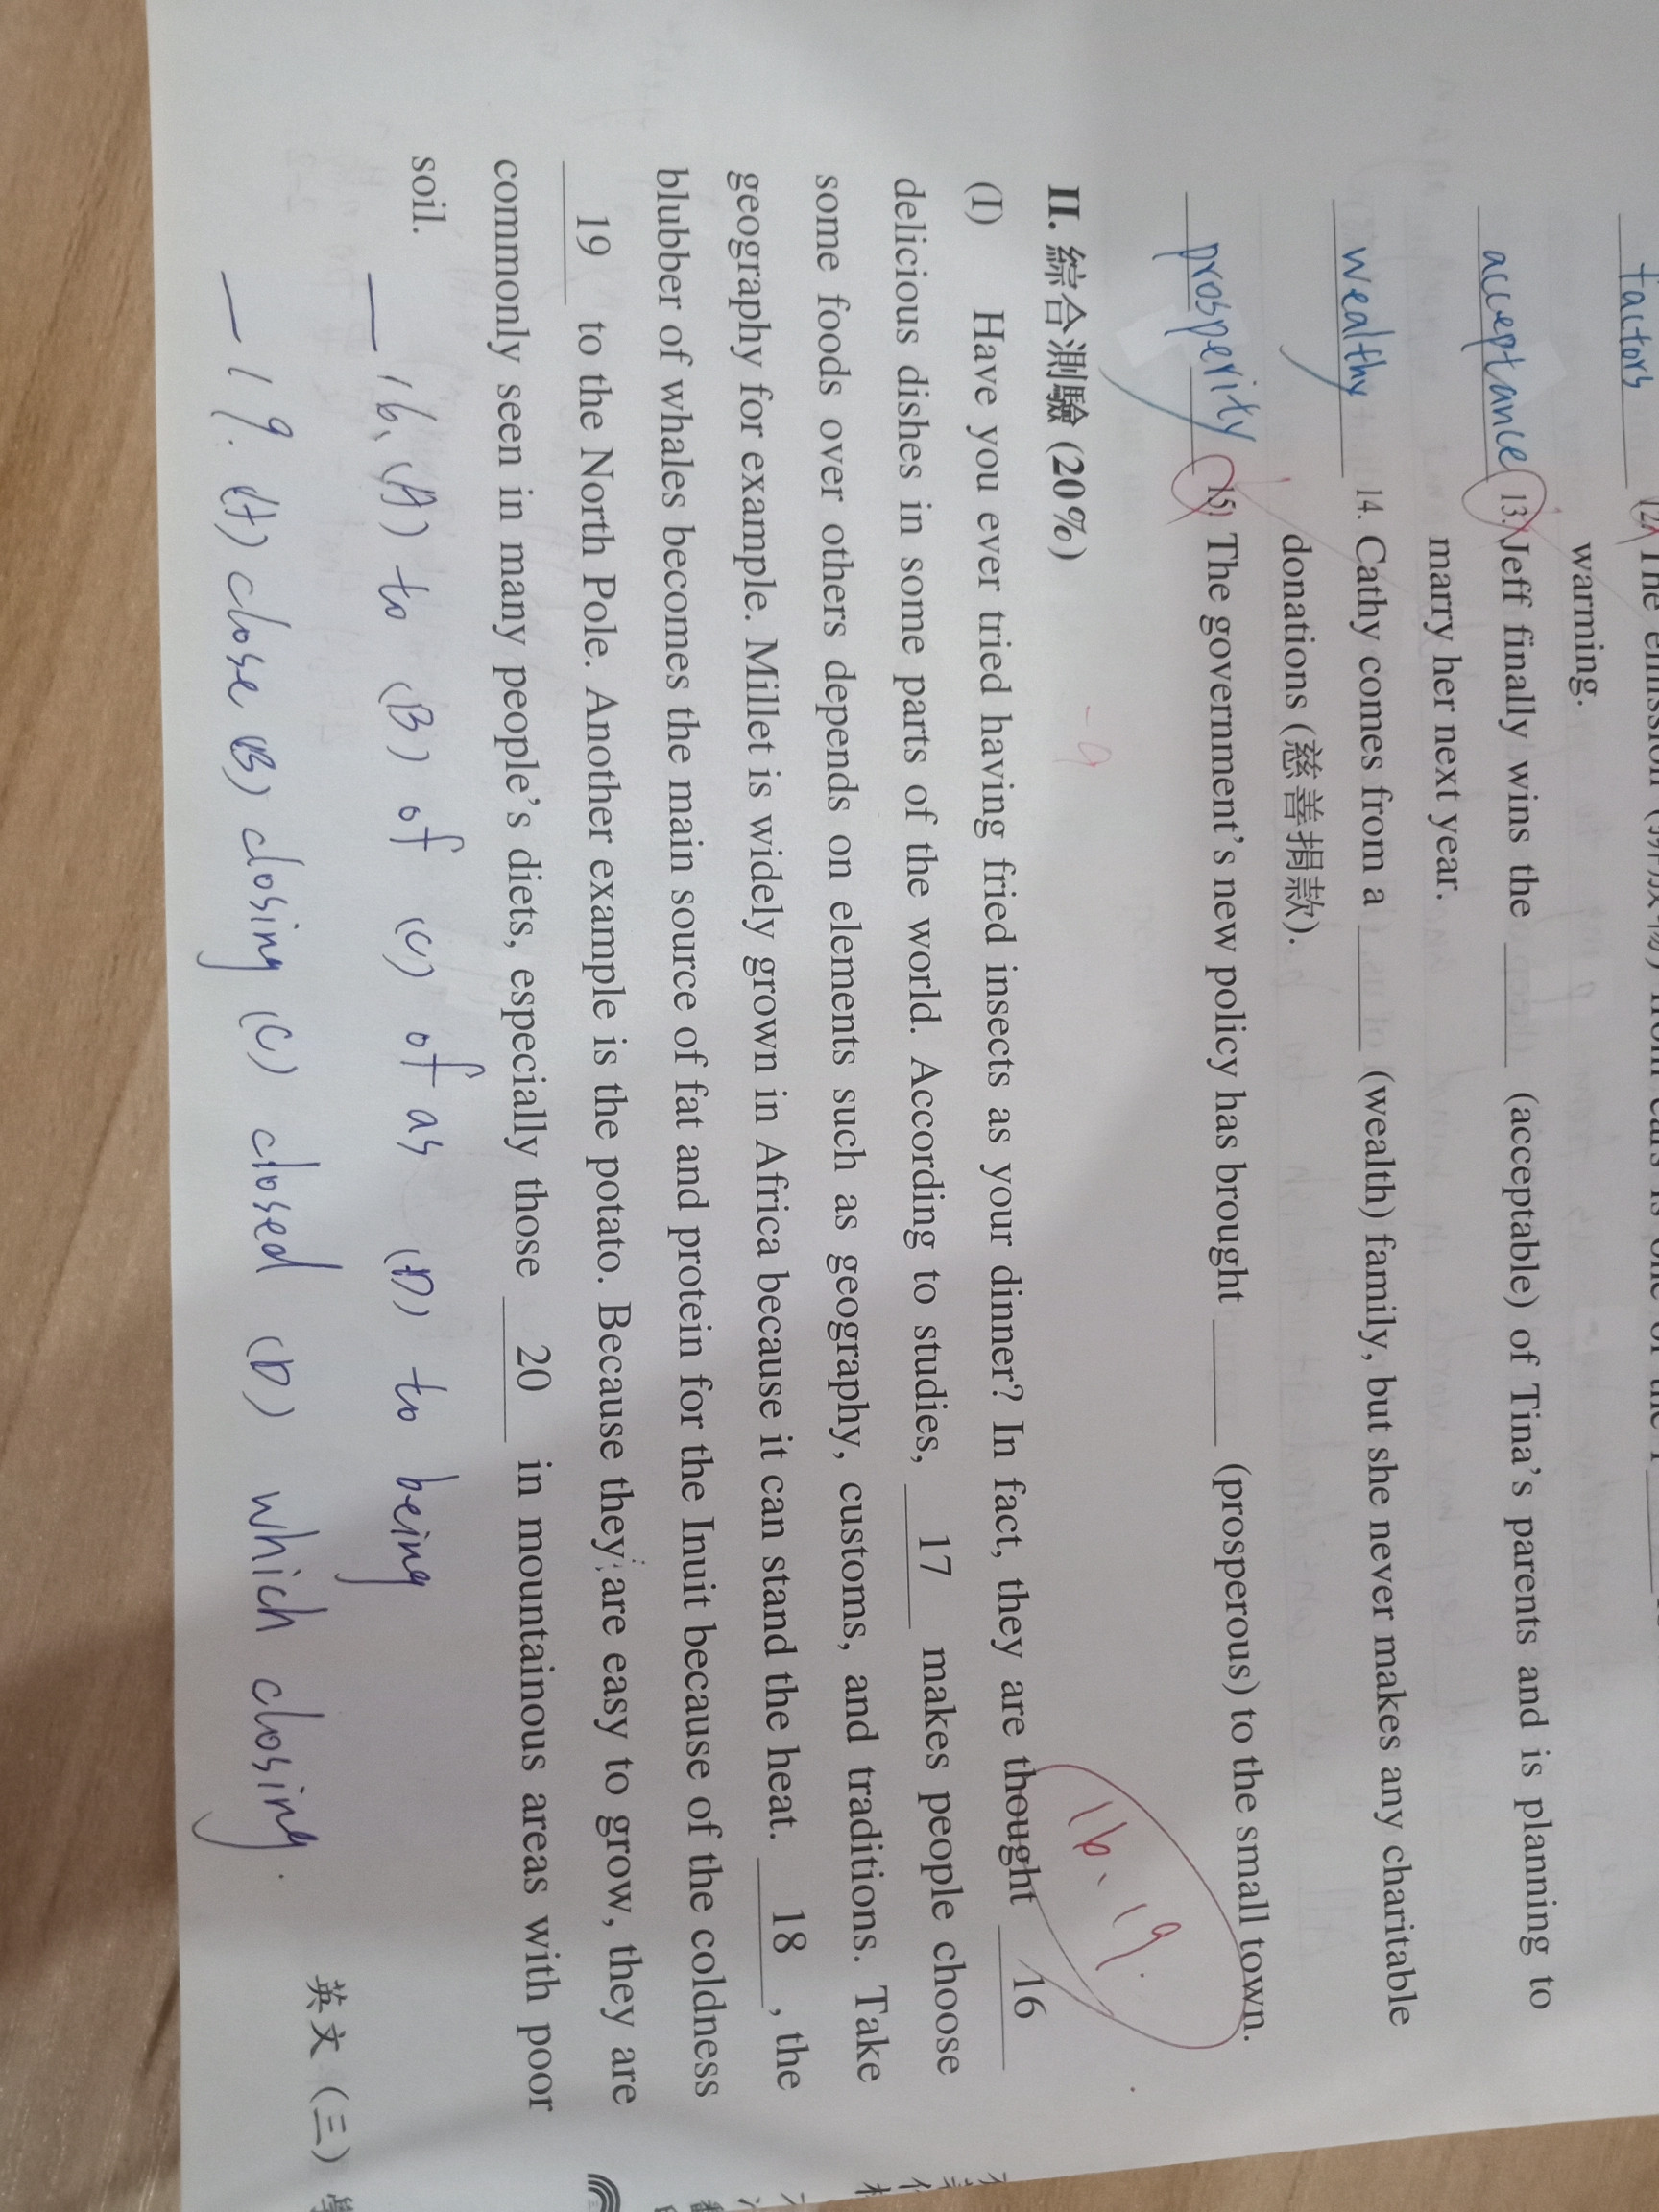 factors
warming.
acceptance 13. Jeff finally wins the ______ (acceptable) of Tina's parents and is planning to
marry her next year.
wealthy 14. Cathy comes from a ______ (wealth) family, but she never makes any charitable
donations (慈善捐款).
prosperity 15. The government's new policy has brought ______ (prosperous) to the small town.
16、19.
-9
II. 綜合測驗 (20%)
(I) Have you ever tried having fried insects as your dinner? In fact, they are thought 16
delicious dishes in some parts of the world. According to studies, 17 makes people choose
some foods over others depends on elements such as geography, customs, and traditions. Take
geography for example. Millet is widely grown in Africa because it can stand the heat. 18 , the
blubber of whales becomes the main source of fat and protein for the Inuit because of the coldness
19 to the North Pole. Another example is the potato. Because they are easy to grow, they are
commonly seen in many people's diets, especially those 20 in mountainous areas with poor
soil.
— 16、(A) to (B) of (C) of as (D) to being
— 19. (A) close (B) closing (C) closed (D) which closing.
英文（三）學